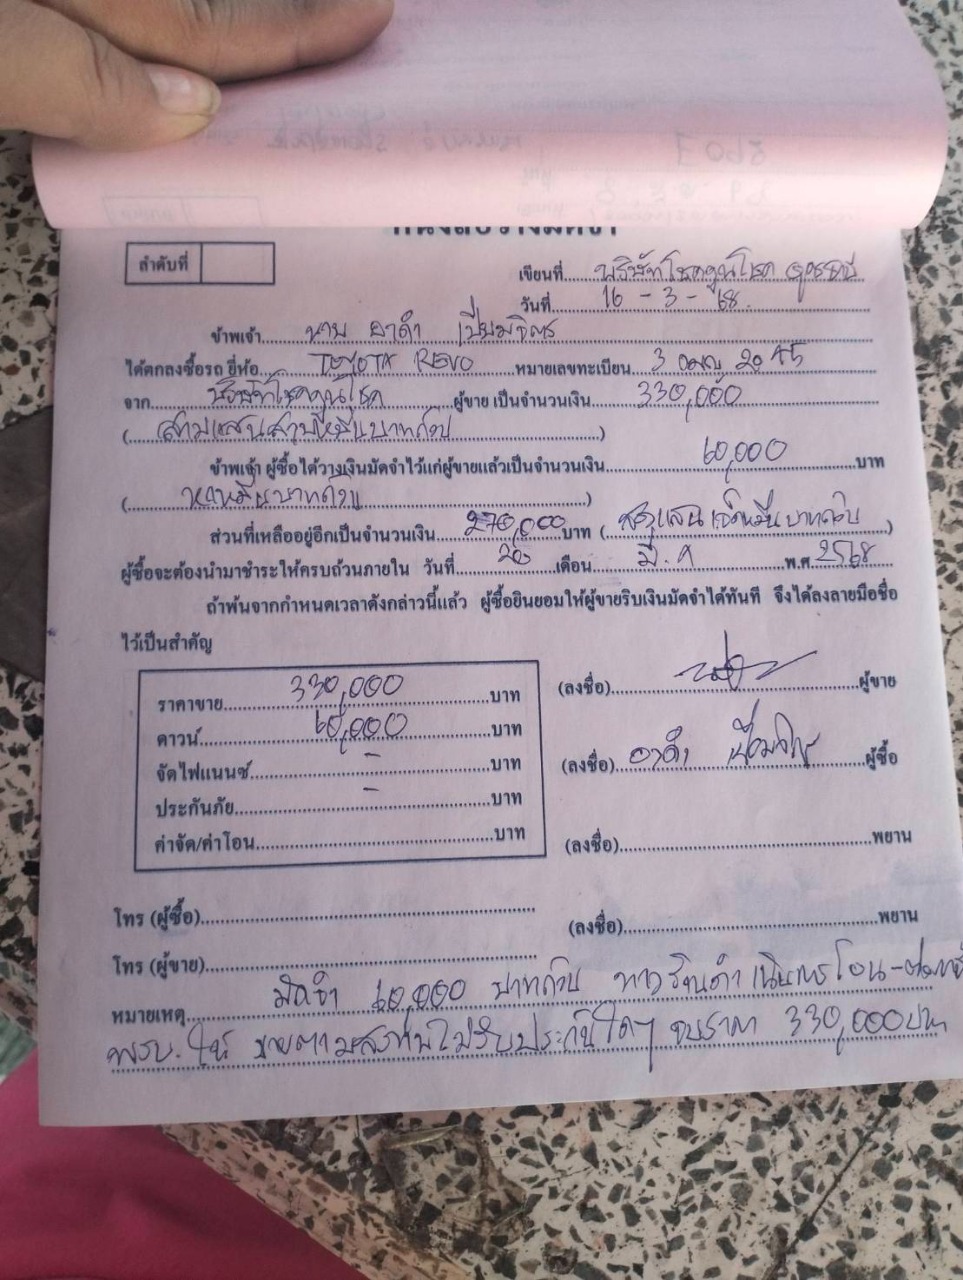 หนังสือวางมัดจำ
ลำดับที่
เขียนที่ บริษัทโชคคูนโชค
วันที่ 16 - 3 - 68
ข้าพเจ้า นาย อาดำ เปี่ยมจิตร
ได้ตกลงซื้อรถ ยี่ห้อ TOYOTA REVO หมายเลขทะเบียน 3 ฒญ 2045
จาก บริษัทโชคคูนโชค ผู้ขาย เป็นจำนวนเงิน 330,000
( สามแสนสามหมื่นบาทถ้วน )
ข้าพเจ้า ผู้ซื้อได้วางเงินมัดจำไว้แก่ผู้ขายแล้วเป็นจำนวนเงิน 60,000 บาท
( หกหมื่นบาทถ้วน )
ส่วนที่เหลืออยู่อีกเป็นจำนวนเงิน 270,000 บาท ( สองแสนเจ็ดหมื่นบาทถ้วน )
ผู้ซื้อจะต้องนำมาชำระให้ครบถ้วนภายใน วันที่ 26 เดือน มี.ค พ.ศ. 2568
ถ้าพ้นจากกำหนดเวลาดังกล่าวนี้แล้ว ผู้ซื้อยินยอมให้ผู้ขายริบเงินมัดจำได้ทันที จึงได้ลงลายมือชื่อ
ไว้เป็นสำคัญ
ราคาขาย 330,000 บาท
ดาวน์ 60,000 บาท
จัดไฟแนนซ์ - บาท
ประกันภัย - บาท
ค่าจัด/ค่าโอน บาท
(ลงชื่อ) ผู้ขาย
(ลงชื่อ) อาดำ เปี่ยมจิตร ผู้ซื้อ
(ลงชื่อ) พยาน
โทร (ผู้ซื้อ)
(ลงชื่อ) พยาน
โทร (ผู้ขาย)
หมายเหตุ มัดจำ 60,000 บาทถ้วน ทางร้านดำเนินการโอน-ต่อภาษี
พรบ. ให้ ขายตามสภาพไม่รับประกันใดๆ จบราคา 330,000 บาท